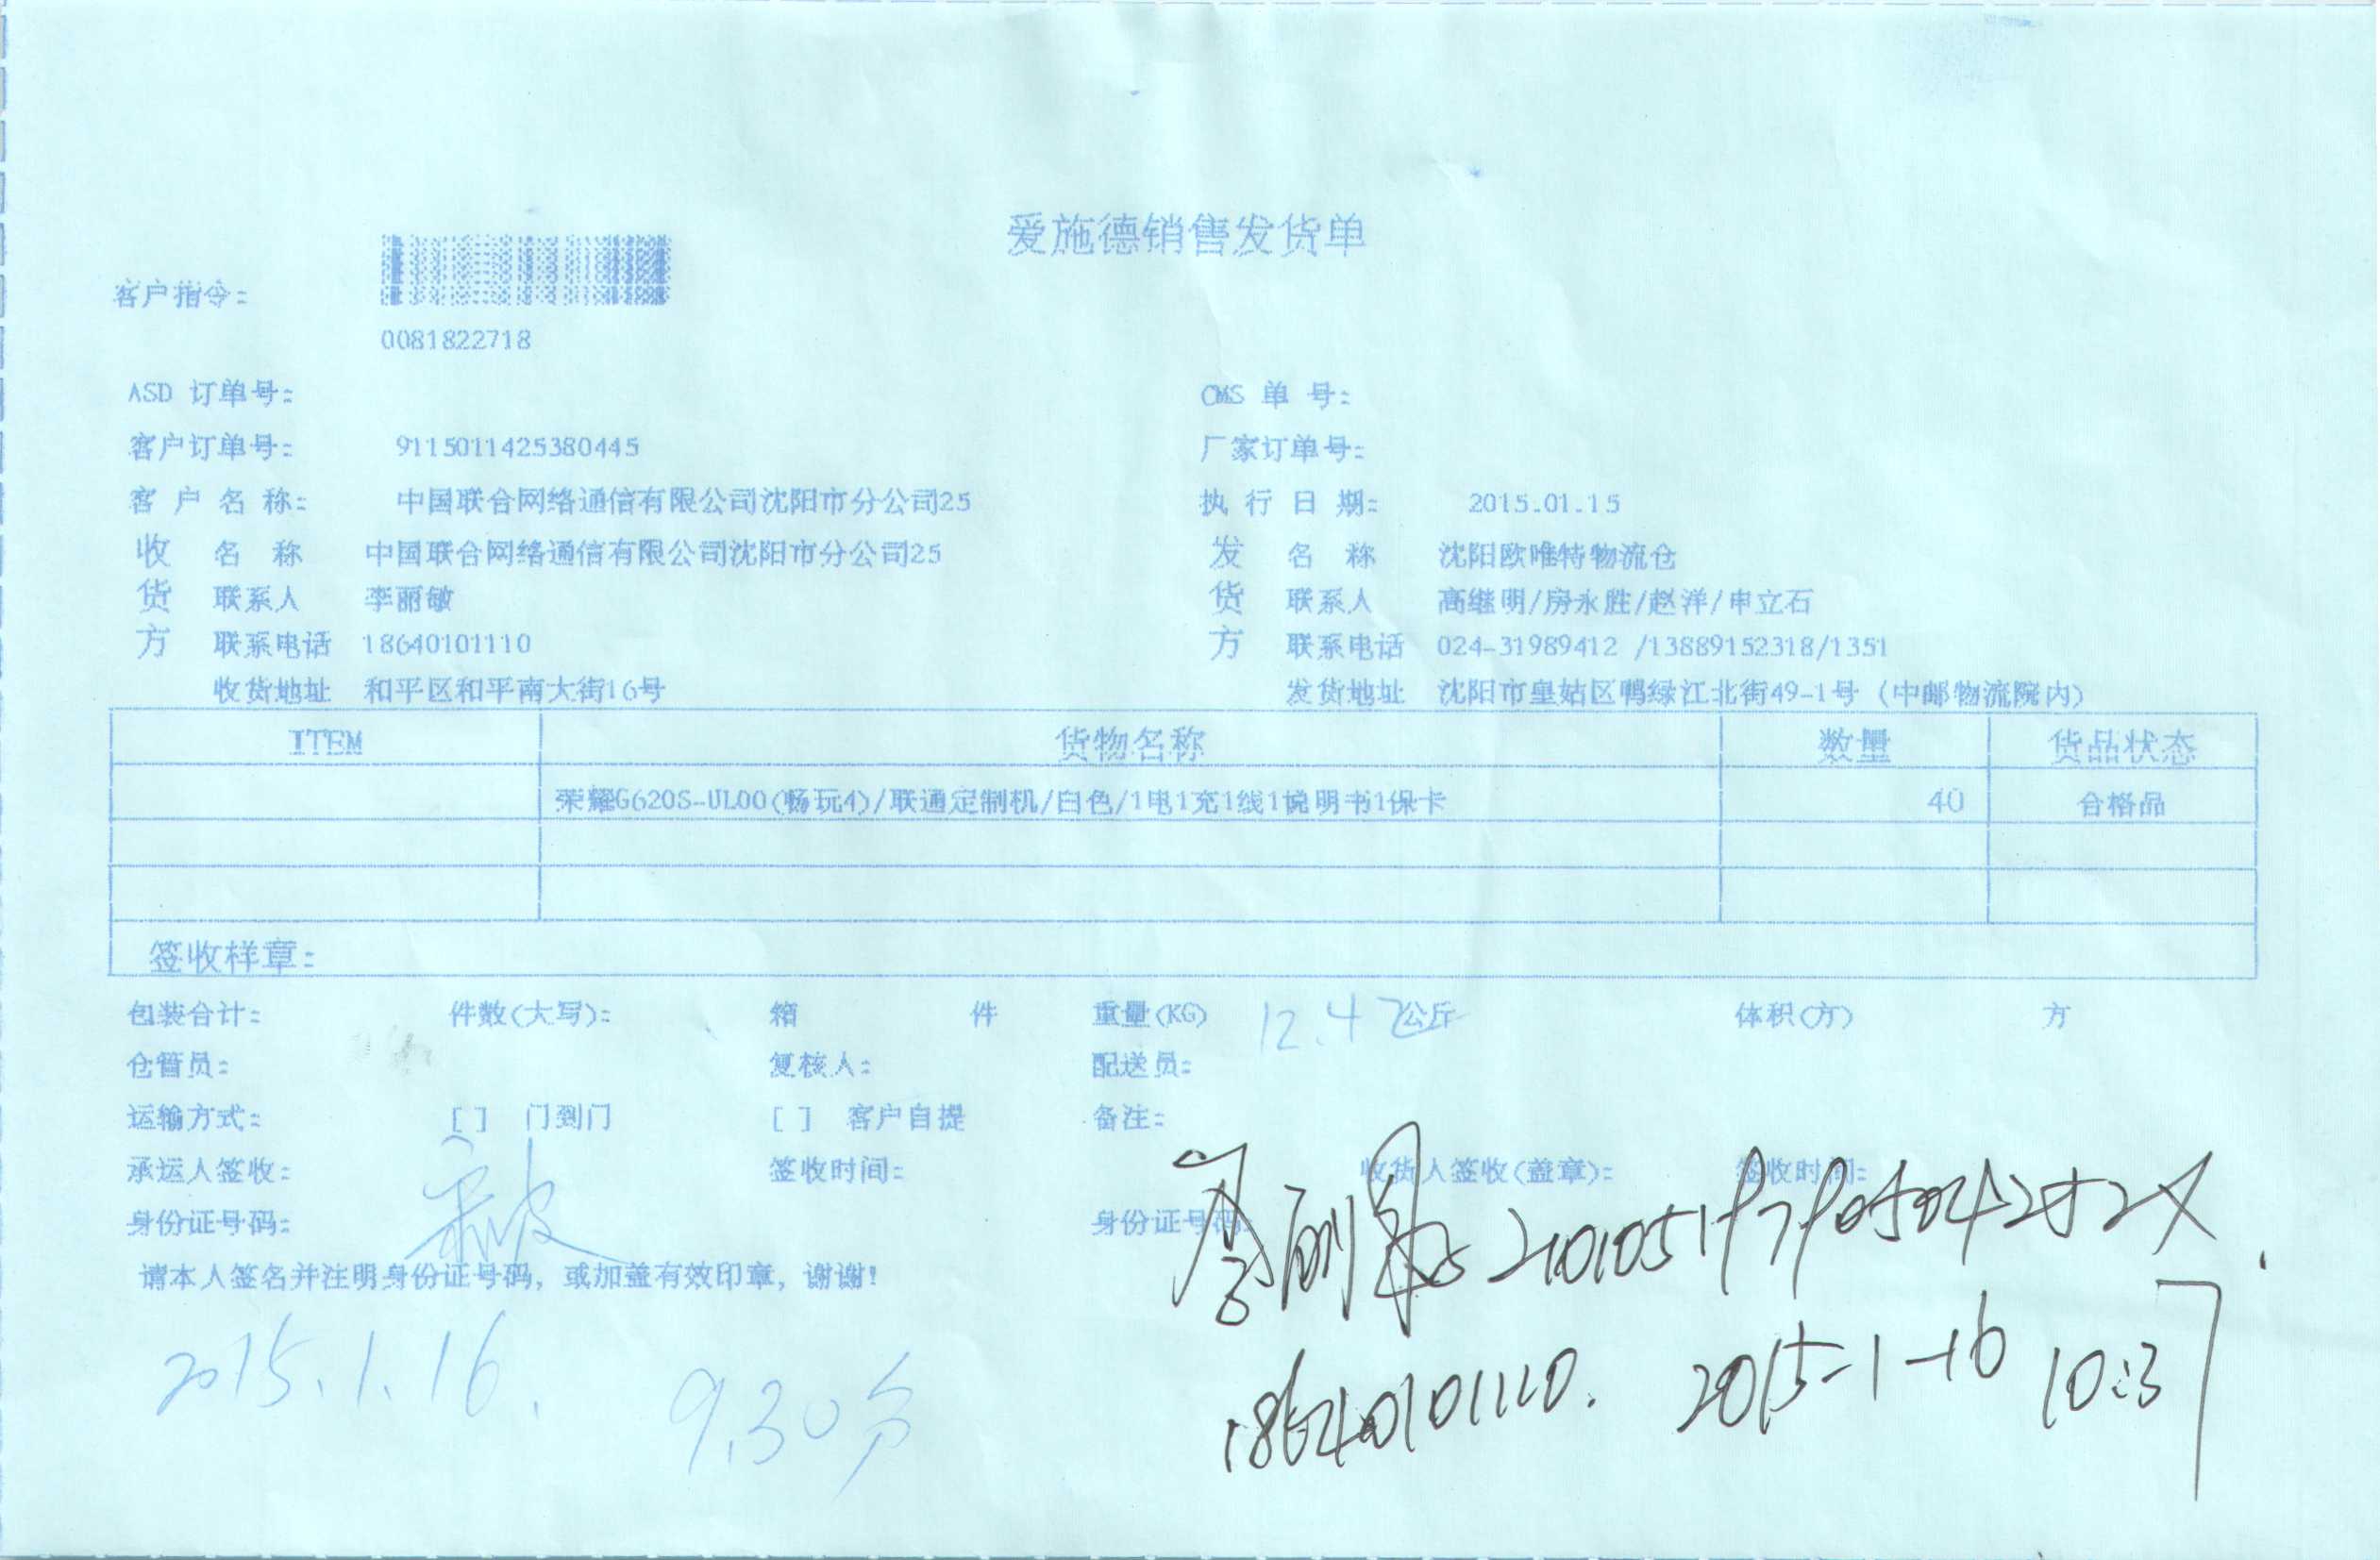 爱施德销售发货单
客户指令:
0081822718
ASD 订单号: CMS 单 号:
客户订单号: 9115011425380445 厂家订单号:
客 户 名 称: 中国联合网络通信有限公司沈阳市分公司25 执 行 日 期: 2015.01.15
收 名 称 中国联合网络通信有限公司沈阳市分公司25 发 名 称 沈阳欧唯特物流仓
货 联系人 李丽敏 货 联系人 高继明/房永胜/赵洋/申立石
方 联系电话 18640101110 方 联系电话 024-31989412 /13889152318/1351
收货地址 和平区和平南大街16号 发货地址 沈阳市皇姑区鸭绿江北街49-1号 (中邮物流院内)
ITEM 货物名称 数量 货品状态
荣耀G620S-UL00(畅玩4)/联通定制机/白色/1电1充1线1说明书1保卡 40 合格品
签收样章:
包装合计: 件数(大写): 箱 件 重量(KG) 12.47公斤 体积(方) 方
仓管员: 复核人: 配送员:
运输方式: [ ] 门到门 [ ] 客户自提 备注:
承运人签收: 签收时间: 收货人签收(盖章): 签收时间:
身份证号码: 身份证号码 李丽敏 21010519790504252X.
请本人签名并注明身份证号码, 或加盖有效印章, 谢谢!
2015.1.16. 9.30分 18640101110. 2015-1-16 10:37